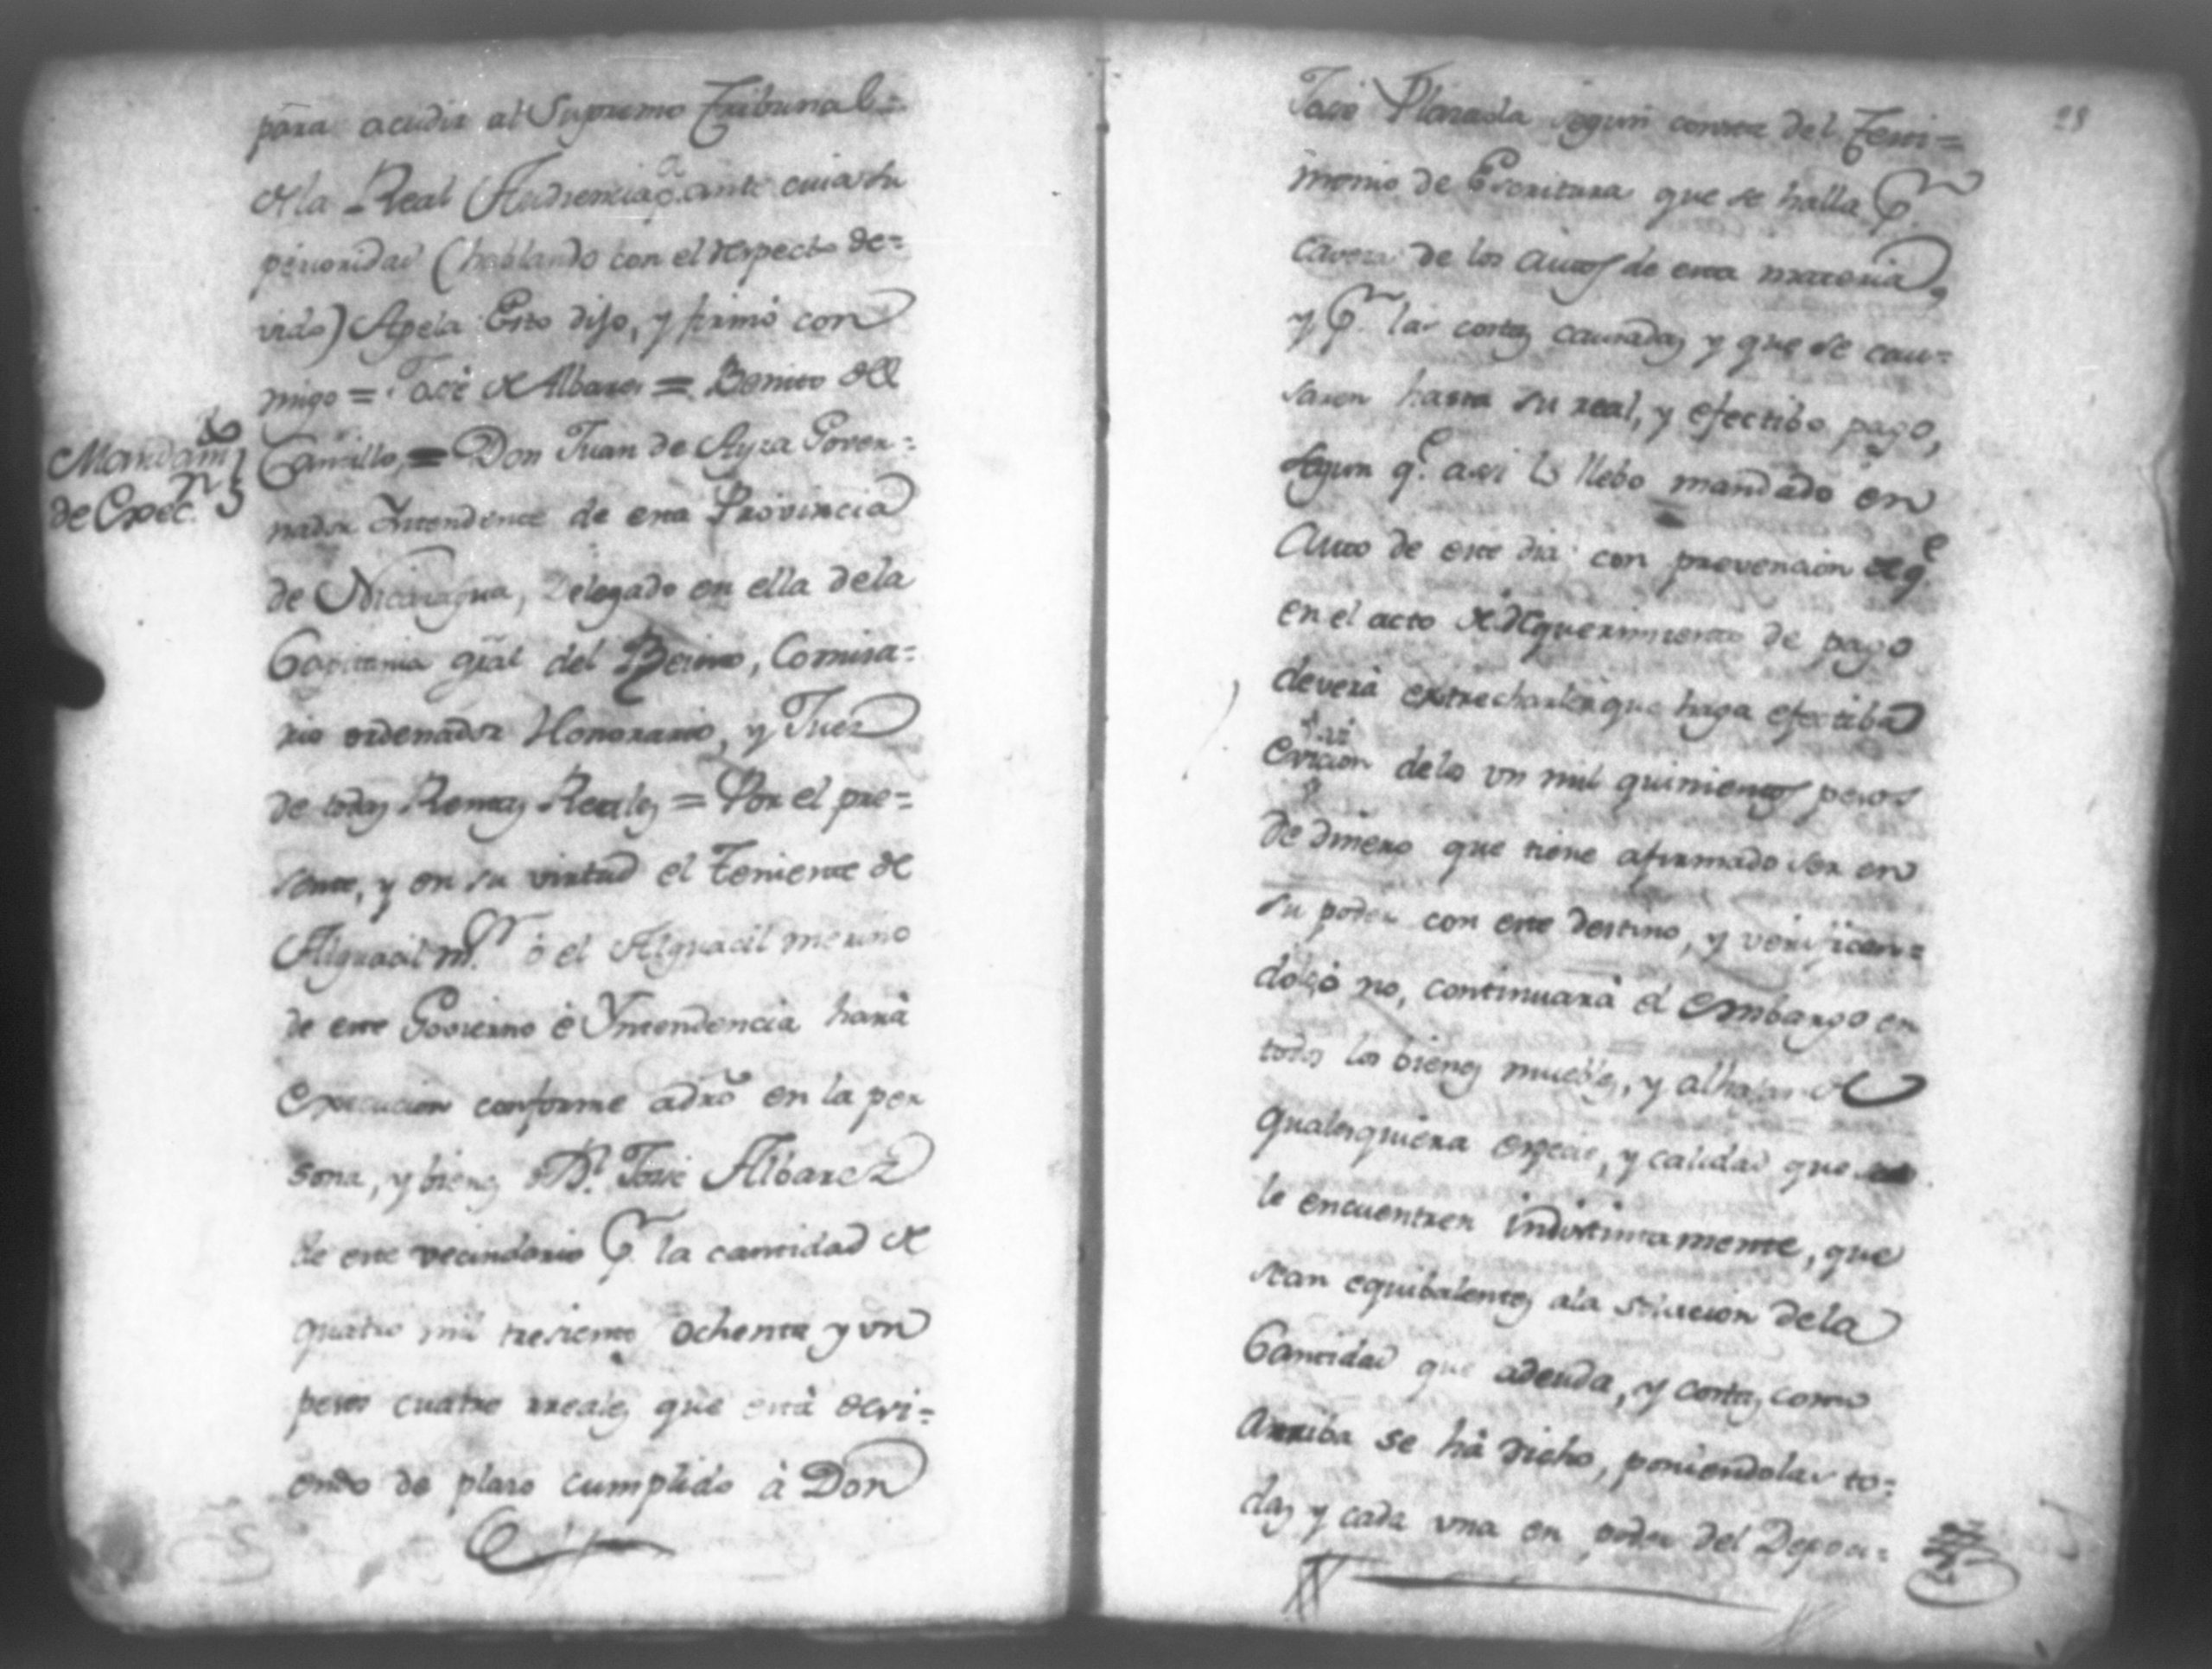 para acudir al Supremo Tribunal=
de la Real Audiencia p.ª ante cuia Su
perioridad (hablando con el respecto de=
vido) Apela Esto dijo, y firmó con
migo = José de Albares = Benito del
Mandam.to
de Exec.on
Carrillo, = Don Juan de Ayza Gover=
nador Yntendente de esta Provincia
de Nicaragua, Delegado en ella dela
Capitania gral del Reino, Comisa=
rio ordenador Honorario, y Juez
de todas Rentas Reales = Por el pre=
sente, y en su virtud el Teniente de
Alguacil m.or ó el Alguacil merino
de este Govierno é Yntendencia hará
execucion conforme adrõ en la per
sona, y bienes de D.n José Albarez
de este vecindario p.r la cantidad de
quatro mil tresientos ochenta y un
pesos cuatro rreales que está devi=
endo de plaso cumplido à Don
28
José Plazada segun consta del Testi=
monio de Escritura que se halla p.r
cavera de los autos de esta materia,
y p.r las costas causadas y que se cau=
saren hasta su real, y efectibo pago,
segun q.e asi lo llebo mandado en
Auto de este dia con prevencion de q.e
en el acto de requerimiento de pago
deverá extrecharle que haga efectiba
de los un mil quinientos pesos
de dinero que tiene afirmado ser en
su poder con este destino, y verifican=
dolo, ó no, continuará el embargo en
todos los bienes muebles, y alhajas de
qualesquiera especie, y calidad que
le encuentren indistintamente, que
sean equibalentes ala solucion dela
Cantidad que adeuda, y costas como
Arriba se há dicho, poniendolas to=
das y cada una en poder del Deposi=